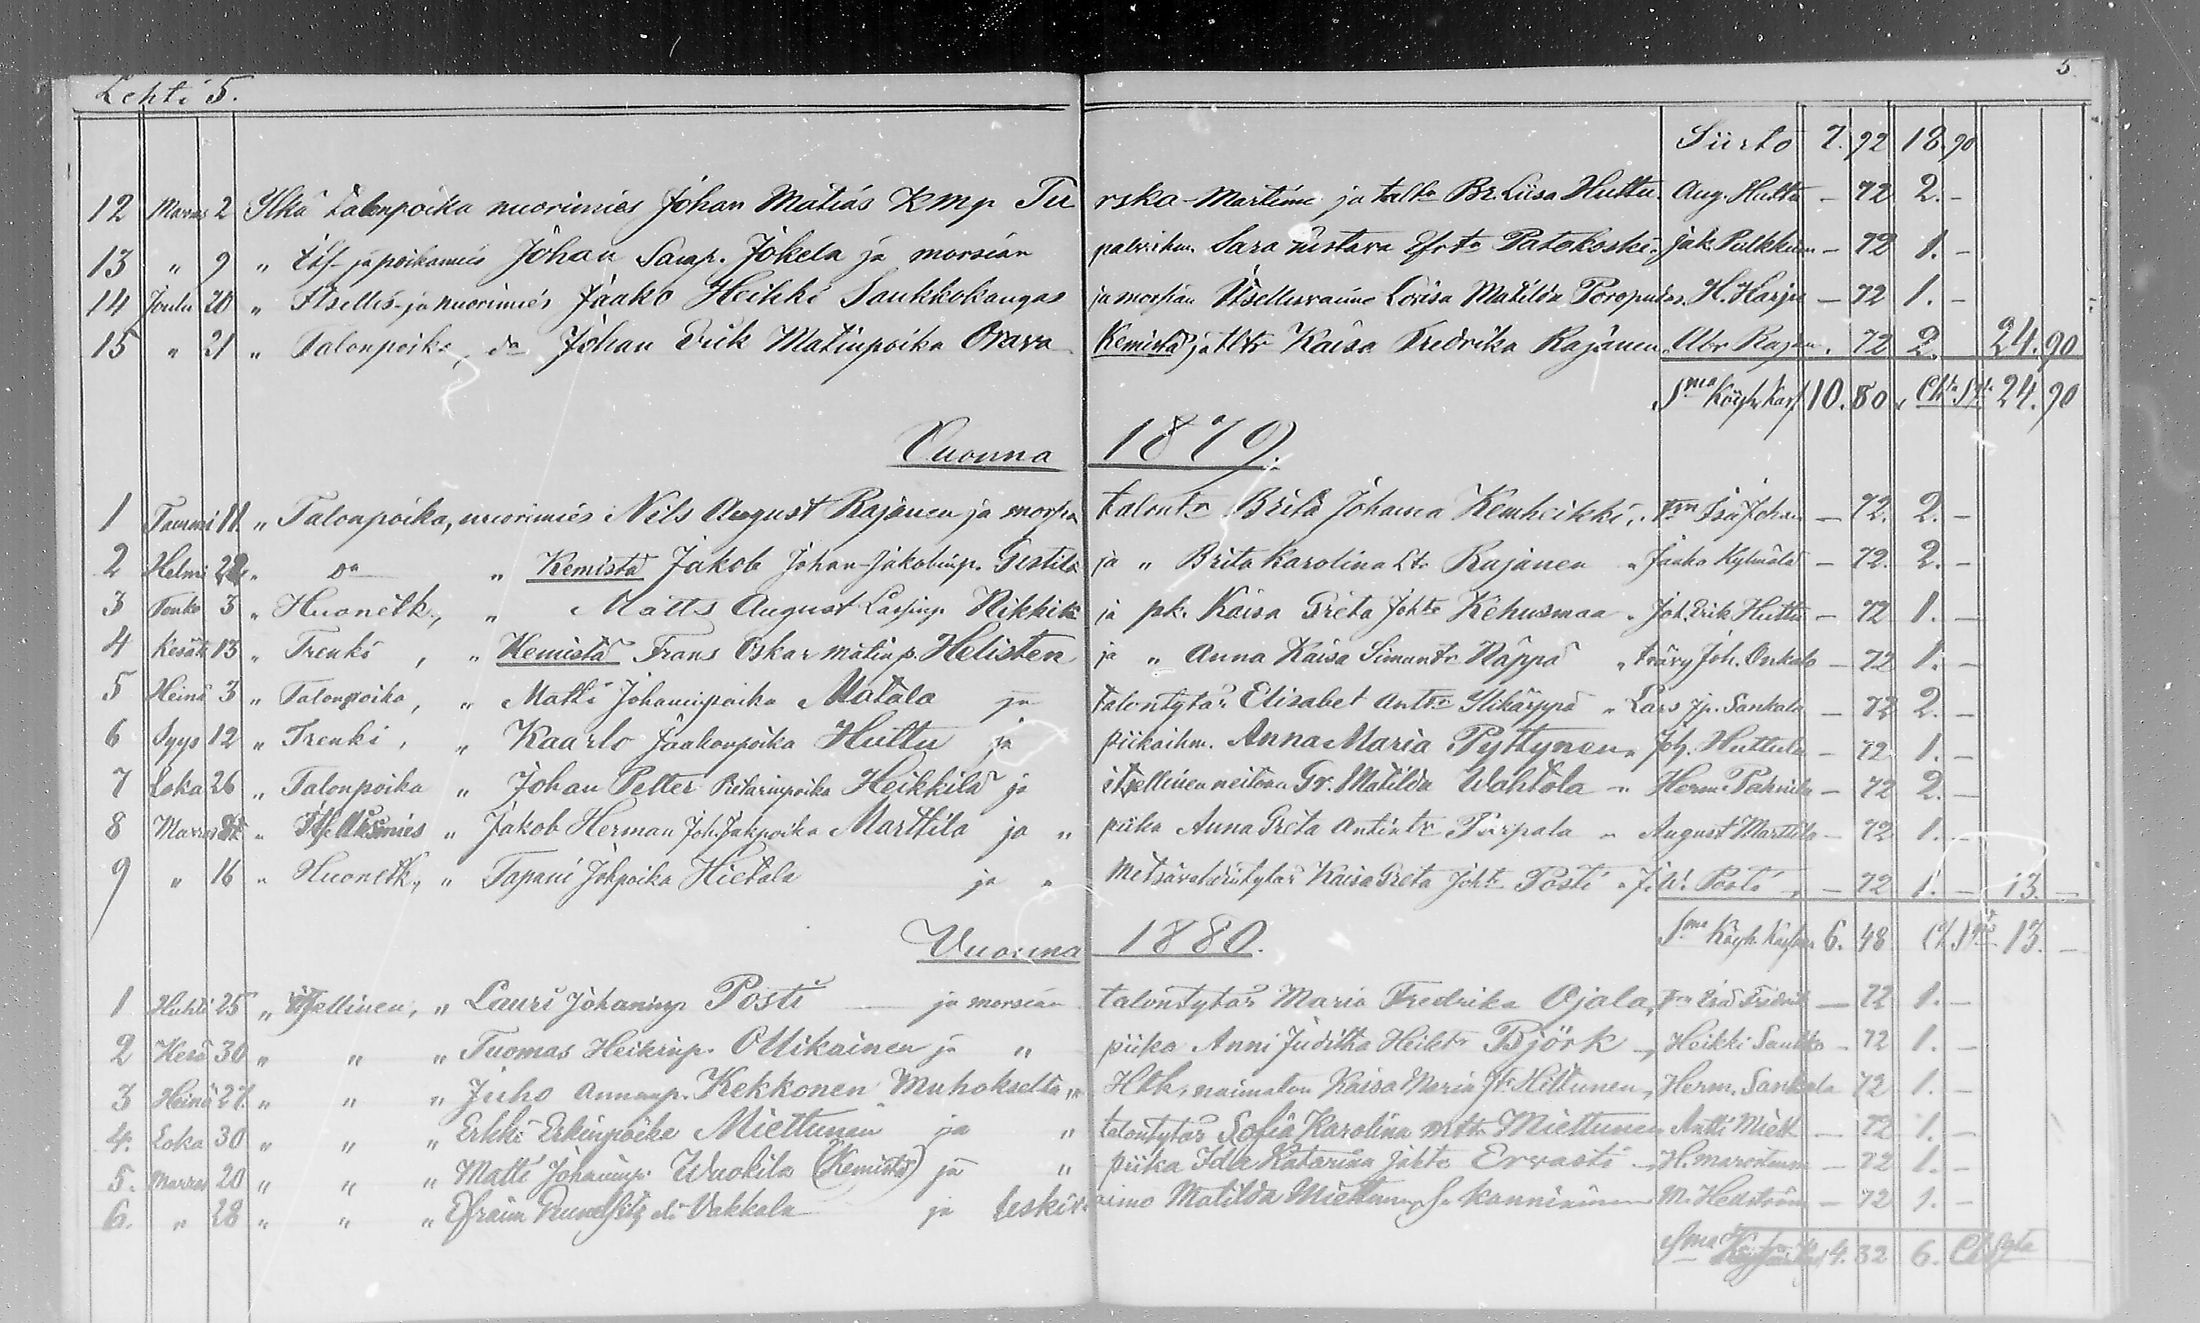 Lehti 5.
5.
Siirto 7. 92 18. 90
12 Marras 2 Ylkä talonpoika nuorimies Johan Matias Kmp Turska-Martimo ja talltr Br. Liisa Huttu. Aug. Huttu — 72 2. —
13 " 9 " Its. ja poikamies Johan Samp. Jokela ja morsian palv.ihm. Sara Gustava Patokoski. Jak. Pulkkinen — 72 1. —
14 Joulu 20 " Itsellis- ja nuorimies Jaako Heikki Saukkokangas ja morsian Itsellisvaimo Lovisa Matilda Poropudas. H. Harju — 72 1. —
15 " 21 " Talonpoika, do Johan Erik Matinpoika Orava Kemistä ja tltr Kaisa Fredrika Rajänen. Abr. Rajän. 72 2. 24. 90
Sma Köyh. Kas. 10. 80 24. 90
Vuonna 1879.
1 Tammi 11 " Talonpoika, nuorimies Nils August Rajänen ja morsn talontr Brita Johanna Kemheikki, Isä Johan — 72. 2. —
2 Helmi " Do " Kemistä Jakob Johan-Jakobinp. Gestilä ja " Brita Karolina Rajänen " Jaako Kylmälä — 72. 2. —
3 Touko 3 " Huonelk., " Matts August Hikkilä ja pk. Kaisa Greta Johtr Kehusmaa. Joh. Erik Huttu — 72 1. —
4 Kesäk 13 " Trenki, " Kemistä Frans Oskar Matinp. Helisten ja " Anna Kaisa Simontr Näppä " Joh. Onkalo — 72 1. —
5 Heinä 3 " Talonpoika, " Matti Johaninpoika Matala ja talontytär Elisabet Anttr Ylikärppä " Lars Jp. Sankala — 72 2. —
6 Syys 12 " Trenki, " Kaarlo Jaakonpoika Huttu ja piikaihm. Anna Maria Pyttynen, Joh. Huttula — 72 1. —
7 Loka 26 " Talonpoika " Johan Petter Pietarinpoika Heikkilä ja itsellinen neitonen Gr. Matilda Wahtola " Herm. — 72 2. —
8 Marras " Itsellismies " Jakob Herman Joh. Jakpoika Marttila ja " piika Anna Greta Antintr Tirpala " August Marttila — 72 1. —
9 " 16 " Huonelk., " Tapani Johpoika Hietala ja " Metsävahdintytär Kaisa Greta Johtr Posti " J. W. Posti, — 72 1. — 13. —
Sma Köyh. 6. 48 13. —
Vuonna 1880.
1 Huhti 25 " Itsellinen, " Lauri Johaninp Posti — ja morsian talontytär Maria Fredrika Ojala, — 72 1. —
2 Kesä 30 " " " Tuomas Heikinp. Ollikainen ja " piika Anni Juditha Heiktr Björk —, Heikki Saukko — 72 1. —
3 Heinä 27. " " " Juho Annanp. Kekkonen Muhokselta " Hth, naimaton Kaisa Maria Hiltunen, Herm. Sankala 72 1. —
4. Loka 30 " " " Erkki Erkinpoika Miettunen ja " talontytär Sofia Karolina Miettunen Antti Miett. — 72 1. —
5. Marras 20 " " " Matti Johaninp. Wuokila (Kemistä) ja " piika Ida Katarina Johtr Ervasti — — 72 1. —
6. " 28 " " " Efraim eli Vakkala ja leskivaimo Matilda Miettunen M. Hedström — 72 1. —
Sma 4. 32 6.